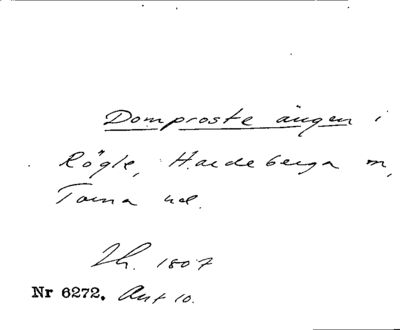 Domproste ängen i
Rögle, Hardeberga m,
Torna hd.
Lh. 1807
Nr 6272. Akt 10.